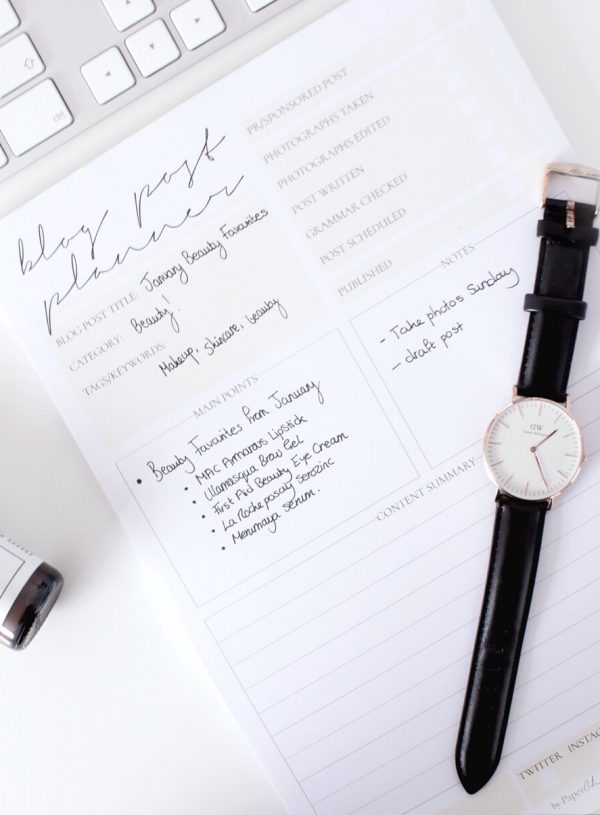 ctrl
blog post
planner
BLOG POST TITLE: January Beauty Favourites
CATEGORY: Beauty!
TAGS/KEYWORDS: Makeup, skincare, beauty
PR/SPONSORED POST
PHOTOGRAPHS TAKEN
PHOTOGRAPHS EDITED
POST WRITTEN
GRAMMAR CHECKED
POST SCHEDULED
PUBLISHED
MAIN POINTS
• Beauty Favourites from January
• MAC Amorous Lipstick
• Illamasqua Brow Gel
• First Aid Beauty Eye Cream
• La Roche posay Serozinc
• Merumaya serum.
NOTES
- Take photos Sunday
- draft post
CONTENT SUMMARY
DW
TWITTER INSTAG
by Paper